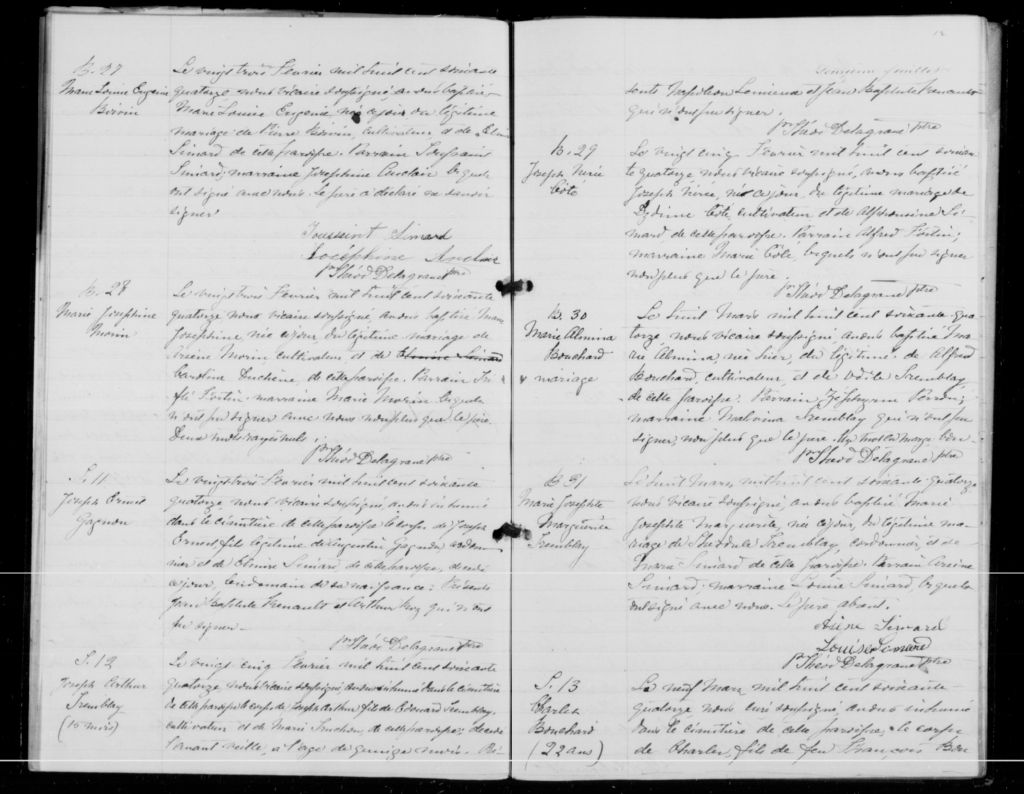 B. 27
Marie Louise Eugénie
Le vingt trois Fevrier mil huit cent soixante
quatorze nous vicaire soussigné, avons baptisé
Marie Louise Eugénie, née ce jour du légitime
mariage de Pierre cultivateur, et de
Simard de cette paroisse. Parrain Toussaint
Simard, marraine Josephine Auclair lesquels
ont signé avec nous. Le père a déclaré ne savoir
signer
Toussaint Simard
Joséphine Auclair
Théod Delagrave ptre
B. 28
Marie Josephine
Morin
Le vingt trois Fevrier mil huit cent soixante
quatorze nous vicaire soussigné avons baptisé Marie
Josephine, née ce jour du légitime mariage de
Morin cultivateur et de
Caroline Duchêne, de cette paroisse. Parrain
Fortin marraine Marie Morin lesquels
n'ont pu signer avec nous non plus que le père.
Deux mots rayés nuls.
Théod Delagrave ptre
S. 11
Joseph Ernest
Gagnon
Le vingt trois Fevrier mil huit cent soixante
quatorze, nous vicaire soussigné, avons inhumé
dans le cimetière de cette paroisse le corps de Joseph
Ernest, fils légitime de Gagnon cordon
nier et de Elmire Simard de cette paroisse, décédé
ce jour, lendemain de sa naissance. Présents
Jean Baptiste et Arthur qui n'ont
pu signer.
Théod Delagrave ptre
S. 12
Joseph Arthur
Tremblay
(15 mois)
Le vingt cinq Fevrier mil huit cent soixante
quatorze nous vicaire soussigné avons inhumé dans le cimetière
de cette paroisse le corps de Joseph Arthur fils de Edouard Tremblay,
cultivateur et de Marie Truchon, de cette paroisse, décédé
l'avant veille, à l'age de quinze mois. Pré
sents Napoléon et Jean Baptiste
qui n'ont pu signer.
Théod Delagrave ptre
B. 29
Joseph Nérée
Côté
Le vingt cinq Fevrier mil huit cent soixan
te quatorze nous vicaire soussigné, avons baptisé
Joseph Nérée, né ce jour du légitime mariage de
Didime Côté, cultivateur et de Alphonsine Si
mard, de cette paroisse. Parrain Alfred Fortin;
marraine Marie Côté, lesquels n'ont pu signer
non plus que le père.
Théod Delagrave ptre
B. 30
Marie Almina
Bouchard
mariage
Le huit Mars mil huit cent soixante qua
torze nous vicaire soussigné, avons baptisé Ma
rie Almina, née hier, du légitime de Alfred
Bouchard, cultivateur, et de Tremblay
de cette paroisse. Parrain Zéphyrin Perron;
marraine Malvina Tremblay qui n'ont pu
signer, non plus que le père. Un mot en marge bon.
Théod Delagrave ptre
B. 31
Marie Josephte
Marguerite
Tremblay
Le huit Mars, mil huit cent soixante quatorze
nous vicaire soussigné, avons baptisé Marie
Josephte Marguerite, née ce jour, du légitime ma
riage de Théodule Tremblay, cordonnier, et de
Marie Simard de cette paroisse. Parrain
Simard; marraine Louise Simard, lesquels
ont signé avec nous. Le père absent.
Simard
Louise Simard
Théod Delagrave ptre
S. 13
Charles
Bouchard
(22 ans)
Le neuf Mars, mil huit cent soixante
quatorze nous curé soussigné, avons inhumé
dans le cimetière de cette paroisse, le corps
de Charles, fils de feu François Bou